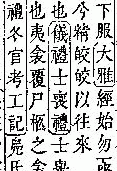 下服大雅經始勿
今精皎皎以往來
也儀禮士喪禮士
也夷衾覆尸柩之衾
禮冬官考工記鳧氏